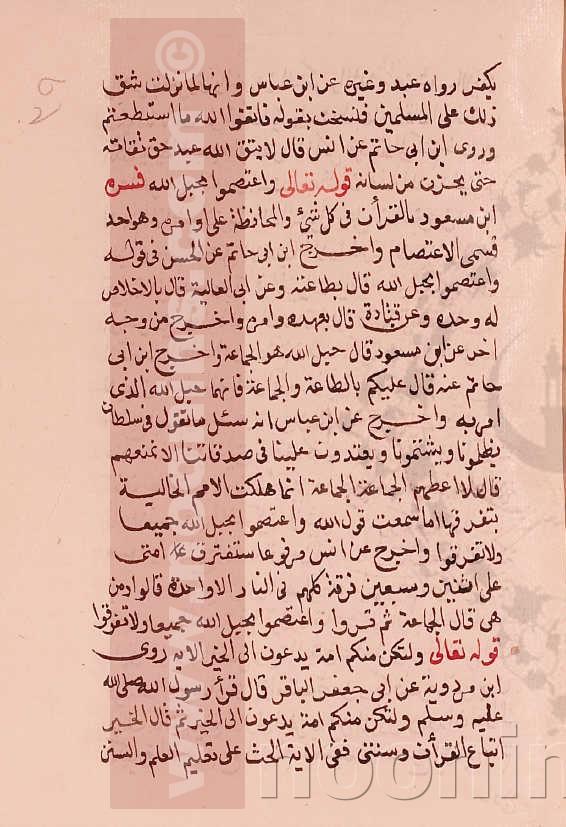 يكفر رواه عبد وغيره عن ابن عباس وانها لما نزلت شق
ذلك على المسلمين فنسخت بقوله فاتقوا الله ما استطعتم
وروى ابن ابى حاتم عن انس قال لا يتق الله عبد حق تقاته
حتى يحزن من لسانه قوله تعالى واعتصموا بحبل الله فسره
ابن مسعود بالقرأن فى كل شئ والمحافظة على اوامره وهو احد
قسمى الاعتصام واخرج ابن ابى حاتم عن الحسن فى قوله
واعتصموا بحبل الله قال بطاعته وعن ابى العالية قال بالاخلاص
له وحده وعن قتادة قال بعهده وامره واخرج من وجه
اخر عن ابن مسعود قال حبل الله هو الجماعة واخرج ابن ابى
حاتم عنه قال عليكم بالطاعة والجماعة فانهما حبل الله الذى
امر به واخرج عن ابن عباس انه سئل ما تقول فى سلطان
يظلمونا ويشتمونا ويعتدون علينا فى صدقاتنا الا نمنعهم
قال لا اعطهم الجماعة الجماعة انما هلكت الامم الخالية
بتفرقها اما سمعت قول الله واعتصموا بحبل الله جميعا
ولا تفرقوا واخرج عن انس مرفوعا ستفترق امتى
على اثنين وسبعين فرقة كلهم فى النار الا واحدة قالوا ومن
هى قال الجماعة ثم تروا واعتصموا بحبل الله جميعا ولا تفرقوا
قوله تعالى ولتكن منكم امة يدعون الى الخير الاية روى
ابن مردوية عن ابى جعفر الباقر قال قرأ رسول الله صلى الله
عليه وسلم ولتكن منكم امة يدعون الى الخير ثم قال الخير
اتباع القرأن وسنتى ففى الاية الحث على تعليم العلم والسنن
noorin